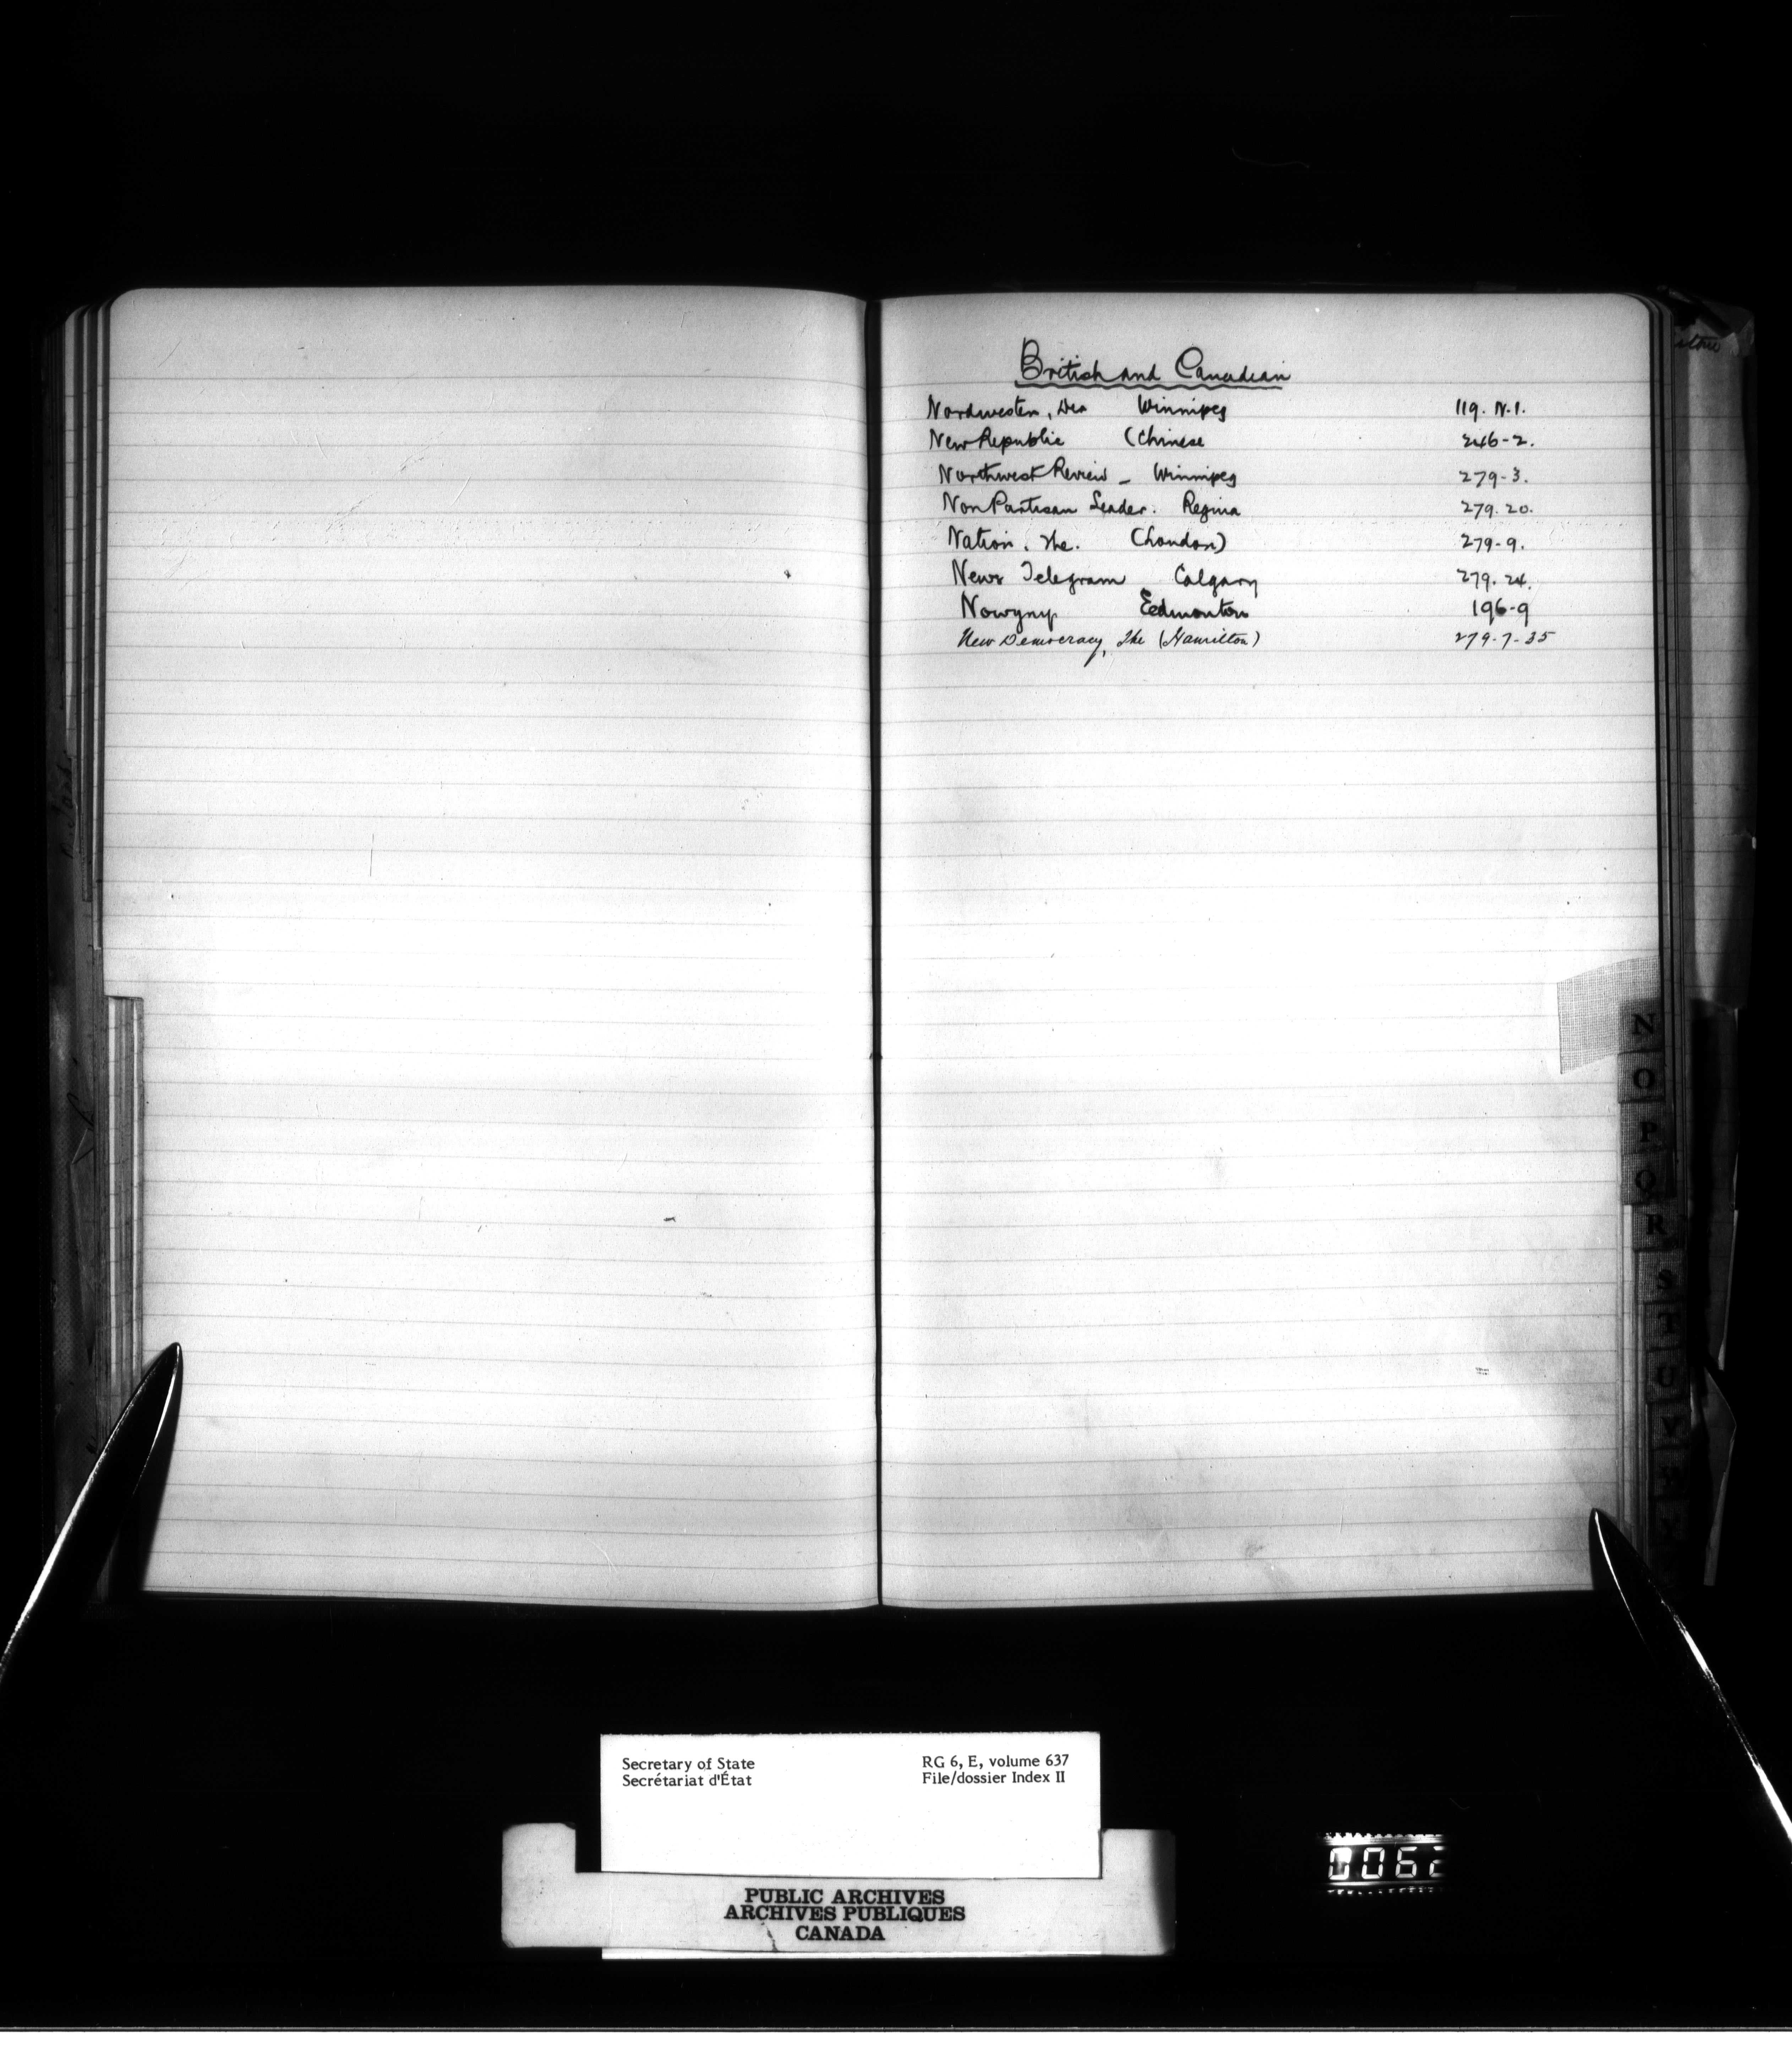 British and Canadian
Nordwesten, Der Winnipeg 119. N.1.
New Republic (Chinese 246-2.
Northwest Review - Winnipeg 279-3.
Non Partisan Leader. Regina 279.20.
Nation. The. (London) 279-9.
News Telegram Calgary 279.24.
Nowyny Eedmonton 196-9
New Democracy, The (Hamilton) 279-7-35
N
O
P
Q
R
S
T
U
V
Secretary of State RG 6, E, volume 637
Secrétariat d'État File/dossier Index II
PUBLIC ARCHIVES
ARCHIVES PUBLIQUES
CANADA